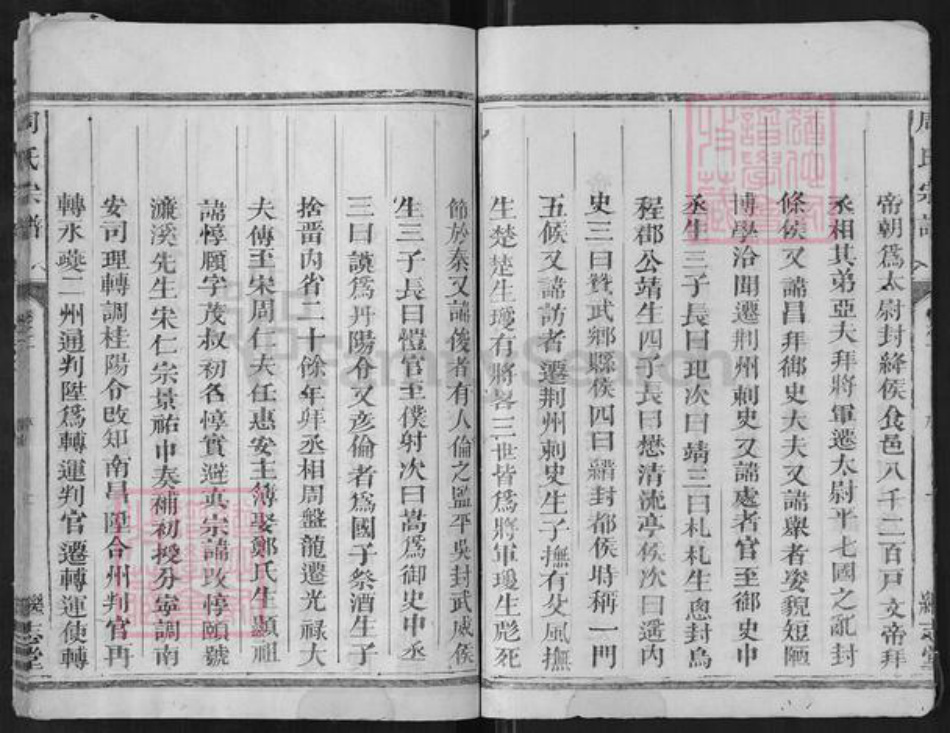 周氏宗譜
帝朝爲太尉封絳侯食邑八千二百戸文帝拜
丞相其弟亞夫拜將軍遷太尉平七國之亂封
條侯又諱昌拜御史大夫又諱舉者姿貌短陋
博學洽聞遷荆州刺史又諱處者官至御史中
丞生三子長曰玘次曰靖三曰札札生悤封烏
程郡公靖生四子長曰懋清流亭侯次曰遙內
史三曰贊武鄉縣侯四曰縉封都侯時稱一門
五候又諱訪者遷荆州刺史生子撫有父風撫
生楚楚生瓊有將畧三世皆爲將軍瓊生彪死
節於秦又諱俊者有人倫之監平吳封武威侯
生三子長曰愷官至僕射次曰嵩爲御史中丞
三曰謨爲丹陽令又彥倫者爲國子祭酒生子
捨晋內省二十餘年拜丞相周盤龍遷光禄大
夫傳至宋周仁夫任惠安主簿娶鄭氏生顯祖
諱惇頤字茂叔初名惇實避真宗諱改惇頤號
濂溪先生宋仁宗景祐中奏補初授分寧調南
安司理轉調桂陽令改知南昌陞合州判官再
轉永虔二州通判陞爲轉運判官遷轉運使轉
周氏宗譜
FamilySearch